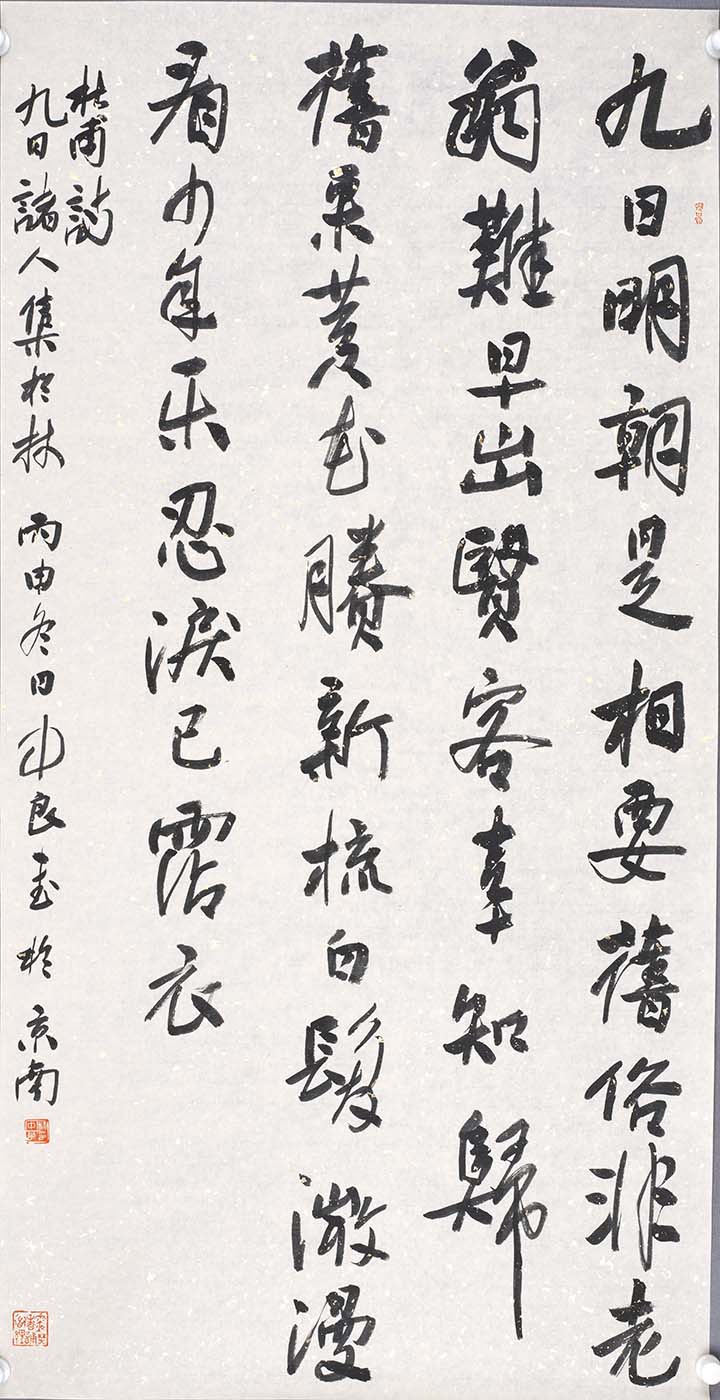 九日明朝是相要舊俗非老
翁難早出賢客幸知歸
舊采黄花賸新梳白髮微漫
看少年乐忍淚已霑衣
杜甫詩
九日諸人集於林 丙申冬日中良書於京南